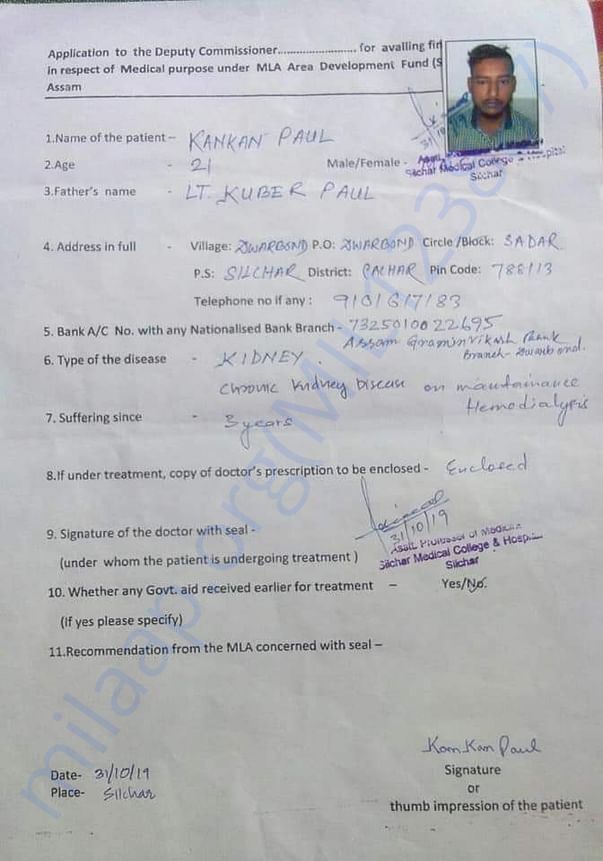 Application to the Deputy Commissioner.......................... for availing fin
in respect of Medical purpose under MLA Area Development Fund (S
Assam
31/10/19
1.Name of the patient – KANKAN PAUL
2.Age - 21 Male/Female -
Silchar Medical College & Hospital
Silchar
3.Father's name - LT. KUBER PAUL
4. Address in full - Village: DWARBOND P.O: DWARBOND Circle /Block: SADAR
P.S: SILCHAR District: CACHAR Pin Code: 788113
Telephone no if any : 9101617183
5. Bank A/C No. with any Nationalised Bank Branch - 7325010022695
Assam Gramin Vikash Bank
Branch - Dwarbond.
6. Type of the disease - KIDNEY.
Chronic Kidney Disease on maintainance
Hemodialysis
7. Suffering since - 3 years
8.If under treatment, copy of doctor's prescription to be enclosed - Enclosed
9. Signature of the doctor with seal -
31/10/19
Asstt. Professor of Medicine
Silchar Medical College & Hospi
Silchar
(under whom the patient is undergoing treatment )
10. Whether any Govt. aid received earlier for treatment – Yes/No.
(If yes please specify)
11.Recommendation from the MLA concerned with seal –
Kankan Paul
Date- 31/10/19
Signature
Place- Silchar
or
thumb impression of the patient